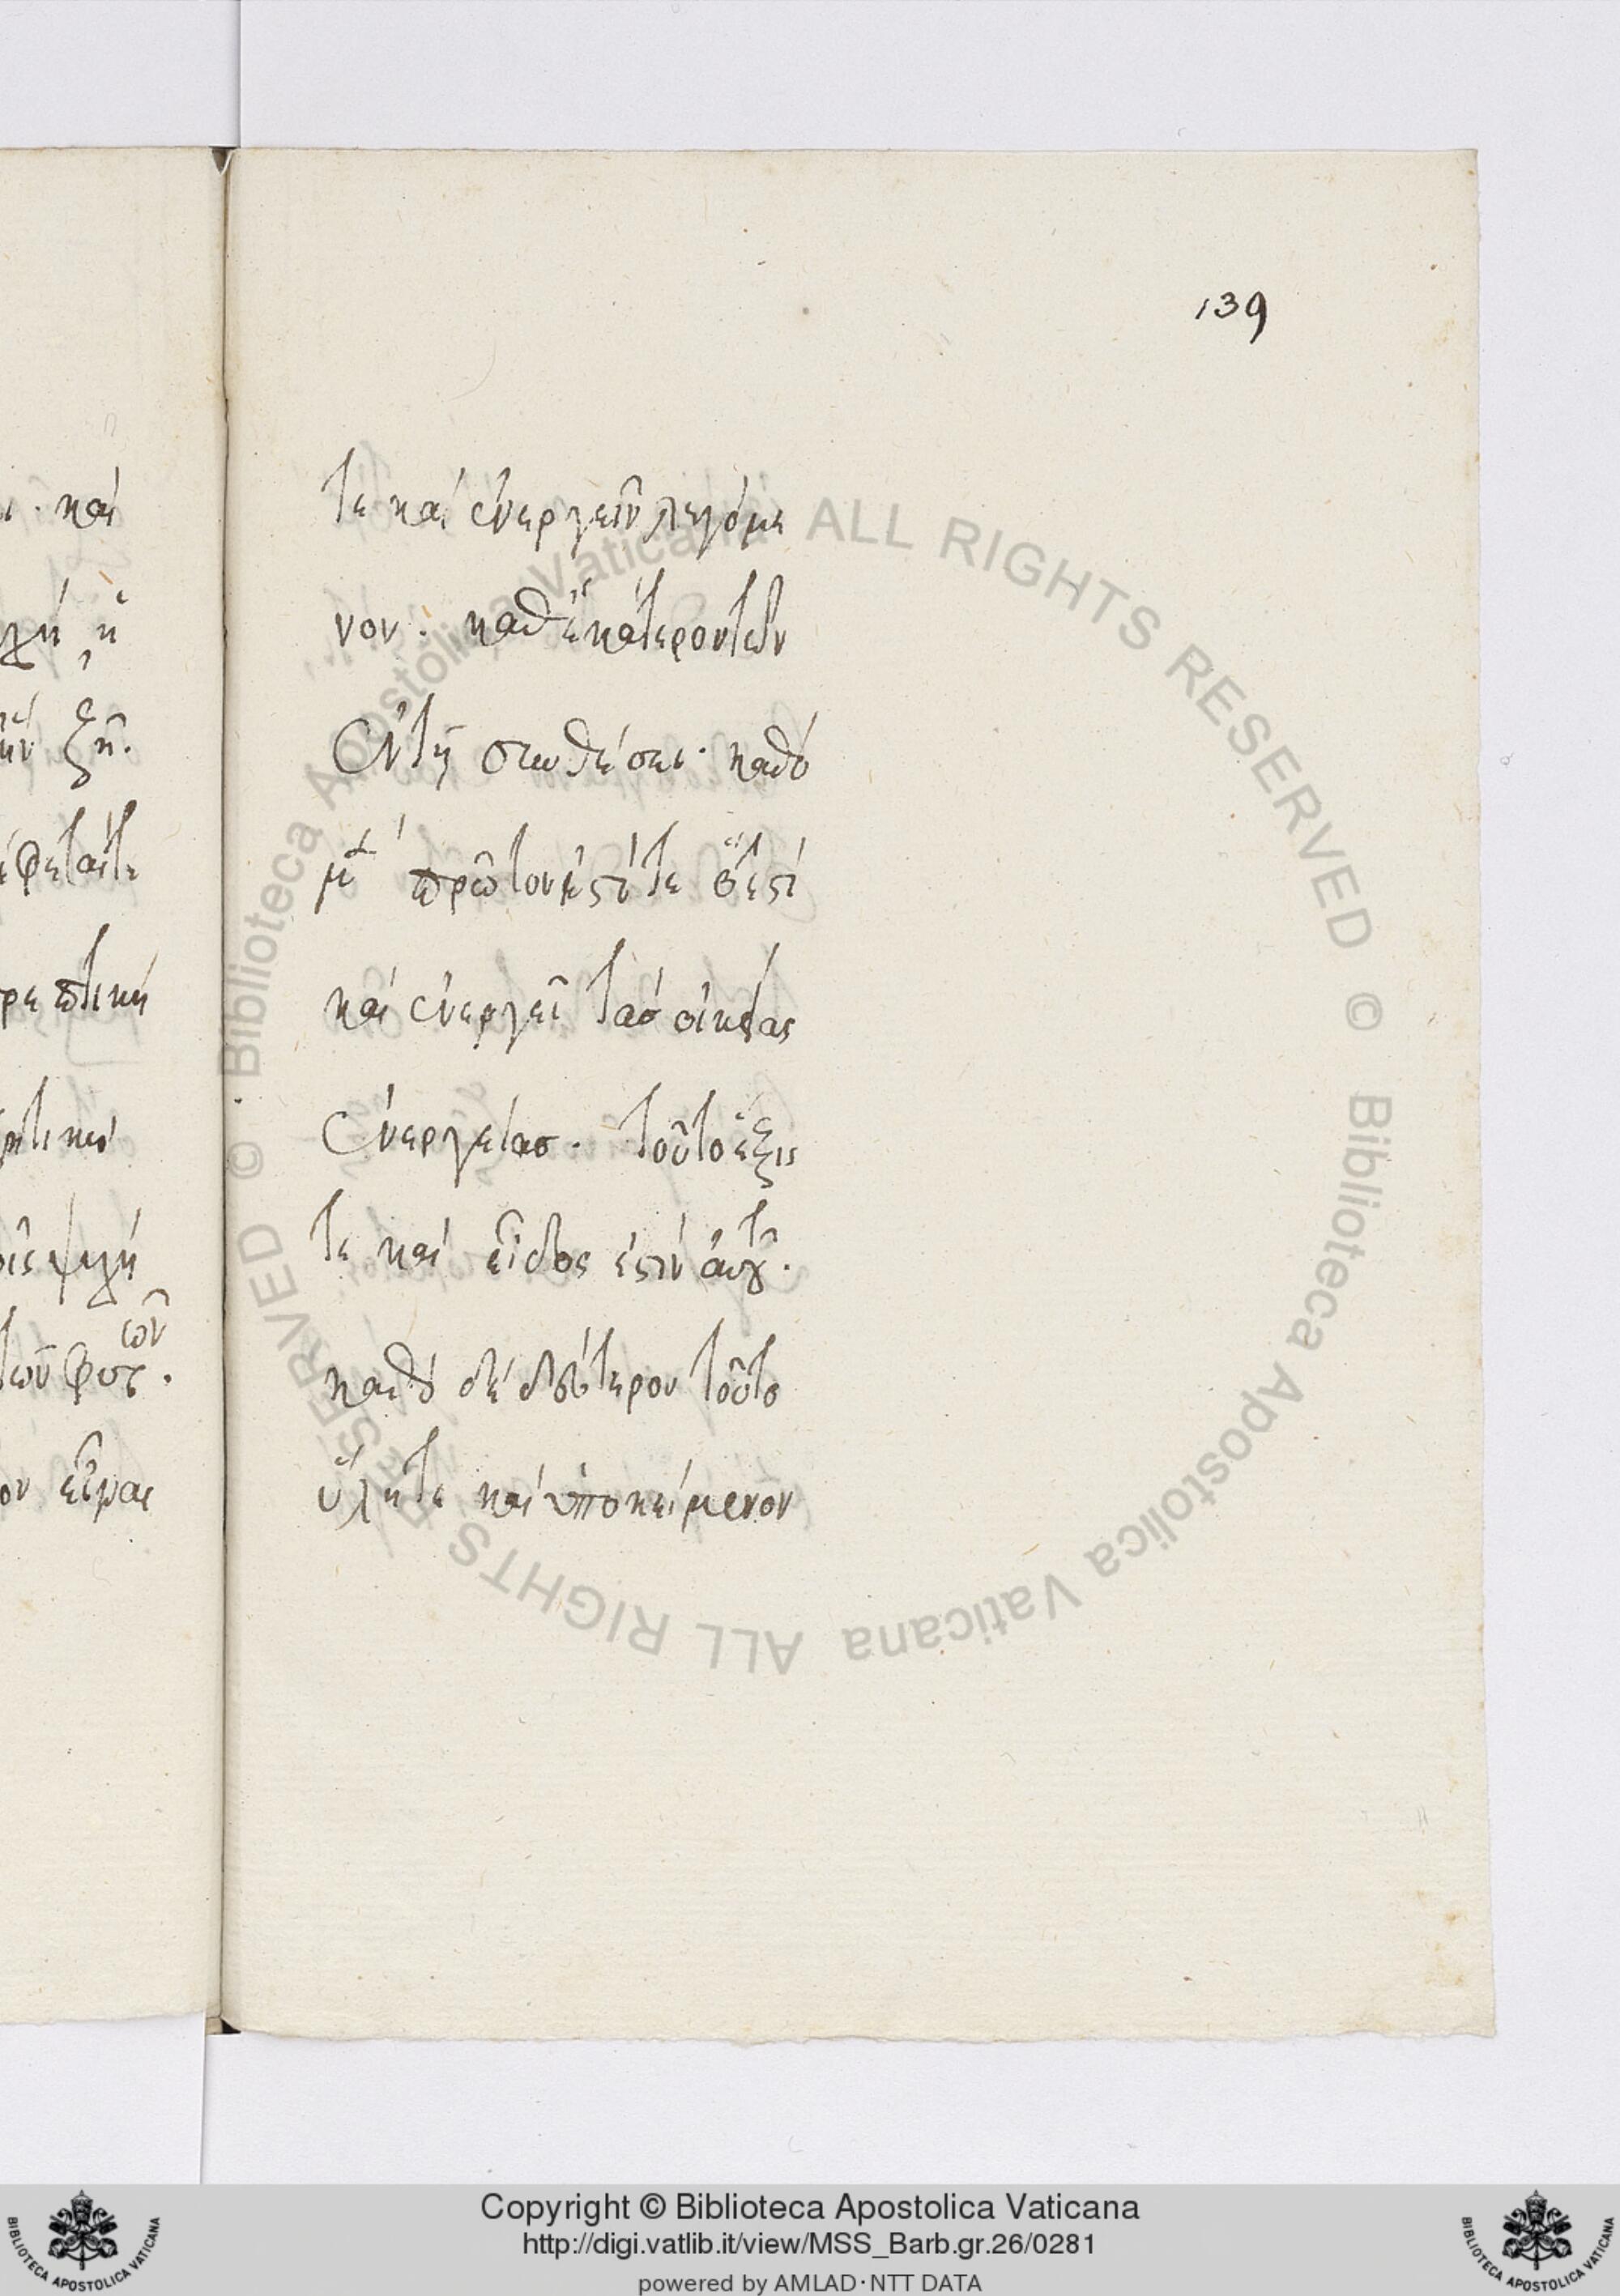 139
τε καὶ ἐνεργεῖν λεγόμε
νον. καθ' ἑκάτερον τῶν
ἐν τῇ συνθέσει. καθὸ
μὲν πρῶτον ἐστί τε ὅ ἐστι
καὶ ἐνεργεῖ τὰσ οἰκείας
ἐνεργείασ. τοῦτο ἕξις
τε καὶ εἶδος ἐστὶν αὐτοῦ.
καθὸ δὲ δεύτερον τοῦτο
ὕλη τε καὶ ὑποκείμενον
καὶ
ζῆν.
ρεπτικὴ
ψυχὴ
τῶν φυτῶν.
εἶναι
© Biblioteca Apostolica Vaticana ALL RIGHTS RESERVED © Biblioteca Apostolica Vaticana ALL RIGHTS RESERVED
BIBLIOTECA APOSTOLICA VATICANA
Copyright © Biblioteca Apostolica Vaticana
http://digi.vatlib.it/view/MSS_Barb.gr.26/0281
powered by AMLAD·NTT DATA
BIBLIOTECA APOSTOLICA VATICANA